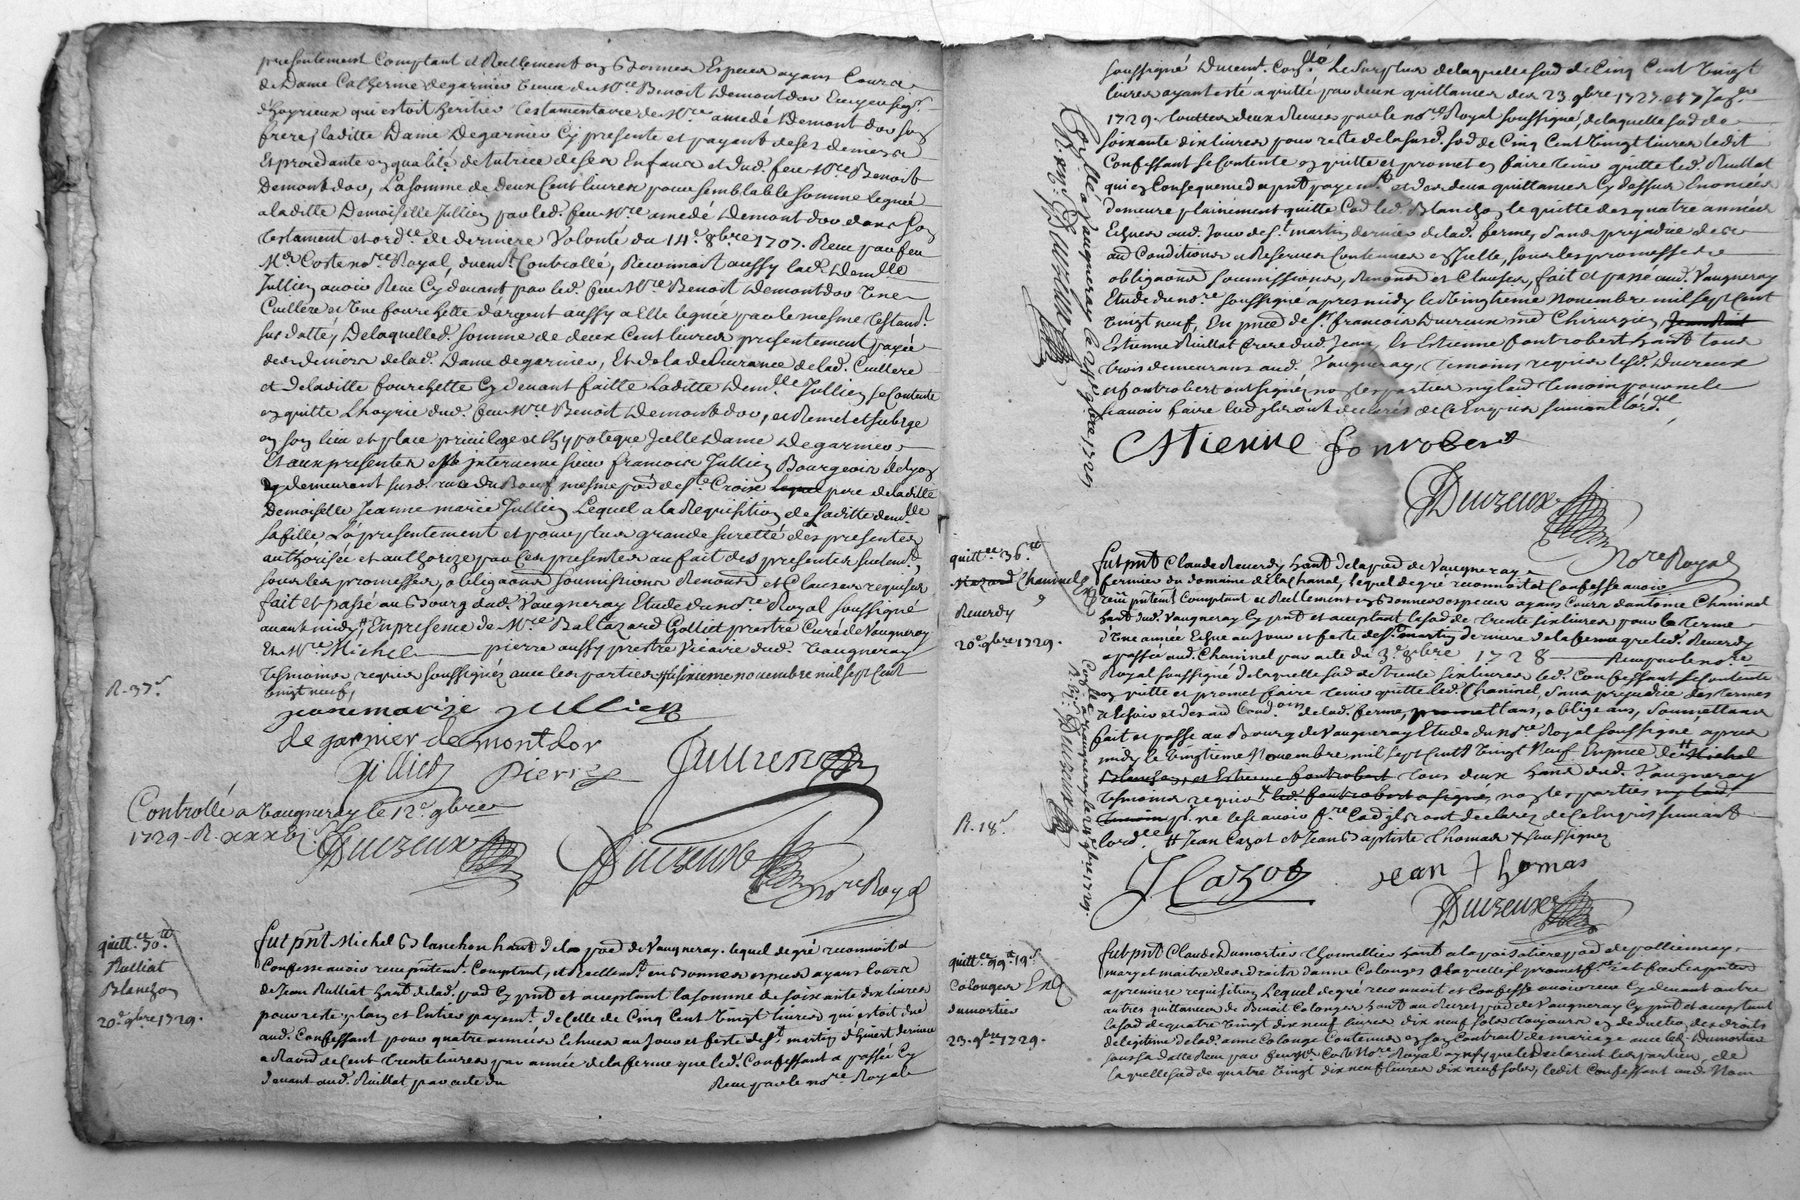 presentement Comptant et Reellement en Bonnes Especes ayans Cours
de Dame Catherine degarnier veuve de Mre Benoit Demontdor Ecuyer seigr
d'hoyrieux qui estoit heritier testamentaire de Mre amedé Demontdor son
frere, laditte Dame Degarnier Cy presente et payant de ses deniers
Et procedante en qualité de tutrice de ses Enfans et dud. feu Mre Benoit
Demontdor, La somme de Deux Cent livres pour semblable somme leguée
a laditte Demoiselle Jullien par led. feu Mre amedé Demontdor dans son
testament et ordce de derniere Volonté du 14e 8bre 1707. Receu par feu
Me Coste nore Royal, duemt Controllé, Reconnoit aussy lad. Demlle
Jullien avoir Receu Cy devant par led. feu Mre Benoit Demontdor Une
Cuilliere et Une fourchette d'argent aussy a Elle leguée par le mesme testamt
sus datté, De laquelle d. somme de deux Cent livres presentement payée
des deniers de lad. Dame degarnier, Et de la delivrance de lad. Cuillere
et de laditte fourchette Cy devant faitte Laditte Demlle Jullien se Contente
en quitte L'hoyrie dud. feu Mre Benoit Demontdor, et Remet et subroge
en son lieu et place privilege et hypoteque Jcelle Dame Degarnier
Et aux presentes est intervenu sieur francois Jullien Bourgeois de Lyon
y demeurant susd. rue du Boeuf mesme psse de Ste Croix lequel pere de laditte
Demoiselle Jeanne marie Jullien Lequel a la Requisition de saditte demlle
sa fille, L'a presentement et pour plus grande sureté des presentes
authorisée et authorize par Ces presentes au fait des presentes
sous les promesses, obligaons soumissions Renonsd et Clauses requises
fait et passé au Bourg dud. Vaugneray Etude du nore Royal soussigné
avant midy, En presence de Mre Baltazard Golliet prestre Curé de Vaugneray
Et Mre Michel pierre aussy prestre Vicaire dud. Vaugneray
tesmoins requis soussignés avec les parties le sixieme novembre mil sept Cent
vingt neuf,
R. 37s
jeanemarize jullien
de garnier de montdor
golliet pierre Jullien
Controllé a Vaugneray le 12e 9bre
1729. R. xxxvi
Ducreux Ducreux
nore Royal
quittce 70lt
Rulliat
Blanchon
20e 9bre 1729.
fut pnt Michel Blanchon hant de la psse de Vaugneray. lequel de gré reconnoit et
Confesse avoir receu pntemt Comptant, et Reellemt en Bonnes especes ayans Cours
de Jean Rulliat hant de lad. psse Cy pnt et acceptant la somme de soixante dix livres
pour reste plain et Entier payemt de Celle de Cinq Cent Vingt livres qui estoit due
aud. Confessant pour quatre années Echues au Jour et feste de St martin d'hivert derniere
a Raison de Cent trente livres par année de la ferme que led. Confessant a passée Cy
devant aud. Rulliat par acte du Receu par le nore Royal
soussigné Duemt Conllé Le surplus de laquelle sod de Cinq Cent Vingt
livres ayant esté acquitté par deux quittances des 23. 9bre 1727. et 7 Janvr
1729. touttes deux Receues par le nore Royal soussigné, de laquelle sod de
soixante dix livres pour reste de la susd. sod de Cinq Cent Vingt livres ledit
Confessant se Contente en quitte et promet en faire tenir quitte led. Rulliat
qui en Consequence du pnt payemt et des deux quittances Cy dessus Enoncées
demeure plainement quitte Cod led. Blanchon le quitte des quatre années
Echues aud. Jour de St martin dernier de lad. ferme, Sans prejudice des
aud Conditions et Reserves Contenues en Jcelle, sous les promesses et
obligaons soumissions, Renonsd et Clauses, fait et passé aud. Vaugneray
Etude du nore soussigné apres midy le Vingtieme Novembre mil sept Cent
Vingt neuf, En pnce de Sr francois Ducreux me Chirurgien,
Estienne Rulliat frere dud. Jean, Et Estienne fontrobert hants tous
trois demeurans aud. Vaugneray, temoins requis lesd. Ducreux
et fontrobert ont signé, non les parties ny led. temoin pour ne le
scavoir faire
Conllé a Vaugneray le 29e 9bre 1729
Ducreux
Etienne fontrobert
Ducreux
nore Royal
quittce 36lt
Chaninel
Reverdy
20e 9bre 1729.
fut pnt Claude Reverdy hant de la psse de Vaugneray
fermier du domaine de la Chanal, lequel de gré reconnoit et Confesse avoir
receu pntemt Comptant et Reellement en Bonnes especes ayans Cours d'antoine Chaninel
hant dud. Vaugneray Cy pnt et acceptant la sod de trente six livres pour le terme
d'Une année Echue au Jour et feste de St martin derniere de la ferme que led. Reverdy
a passée aud. Chaninel par acte du 3e 8bre 1728 Receu par le nore
Royal soussigné de laquelle sod de trente six livres led. Confessant se Contente
en quitte et promet faire tenir quitte led. Chaninel, Sans prejudice des termes
a Echoir et des aud Condons de lad. ferme, promettans, obligeans, soumettans
fait et passé au Bourg de Vaugneray Etude du nore Royal soussigné apres
midy le Vingtieme Novembre mil sept Cent Vingt Neuf En pnce de Michel
Blanchon, et Estienne fontrobert tous deux hants dud. Vaugneray
tesmoins requis led. fontrobert a signé, non les parties ny led.
temoin pr ne le scavoir fre
Jean Cazot et Jean Baptiste thomas soussignés
R. 18s
J Cazot jean thomas
Ducreux
quittce 99lt 19s
Colonges
dumortier
23. 9bre 1729.
fut pnt Claude Dumortier thonnellier hant a la poisoliere psse de pollionnay,
mary et maitre des droits d'anne Colonges a laquelle il promet
a premiere requisition Lequel de gré reconnoit et Confesse avoir receu Cy devant outre
autres quittances de Benoit Colonges hant au psse de Vaugneray Cy pnt et acceptant
la sod de quatre Vingt dix neuf livres dix neuf sols toujours en deduction des droits
de legitime de lad. anne Colonge Contenus en son Contract de mariage avec led. Dumortier
sous sa datte Receu par feu Me Coste Nore Royal ainsy que le declarent les parties, de
laquelle sod de quatre Vingt dix neuf livres dix neuf sols, ledit Confessant aud. Nom